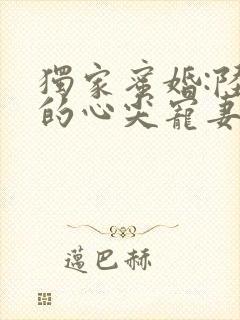 獨家蜜婚:陸
的心尖寵妻
蒀巴赫